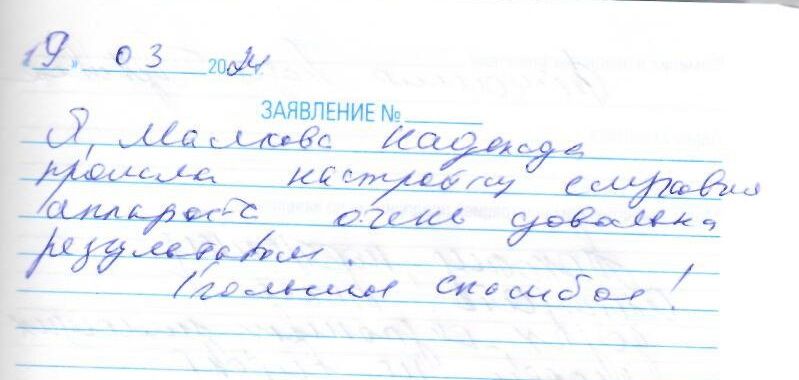 19 03 2024
ЗАЯВЛЕНИЕ №
Я, Малкова Надежда
прошла настройку слуховых
аппарата очень довольна
результатом.
Большое спасибо!